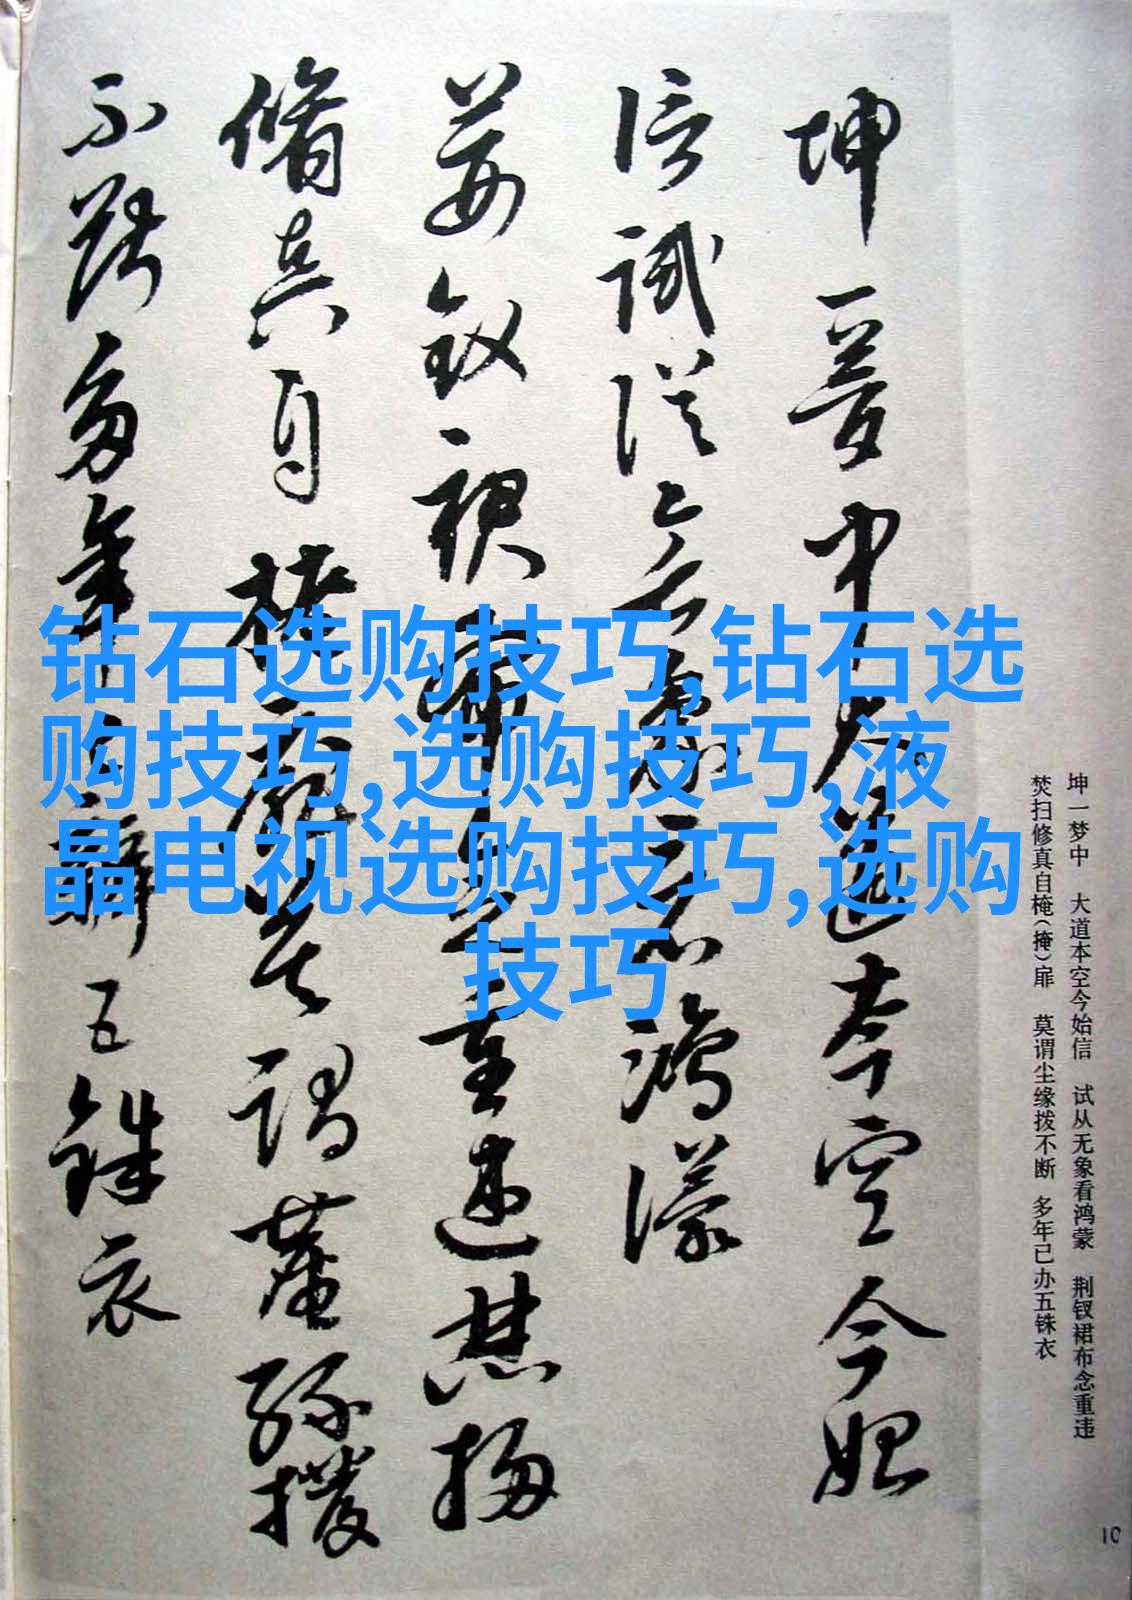 坤一夢中大道本空今始
信試從無象看鴻濛
荆釵裙布念重違焚掃
脩真自掩扉莫謂塵緣撥
不斷多年已辦五銖衣
坤一梦中 大道本空今始信 试从无象看鸿蒙 荆钗裙布念重违
焚扫修真自(掩)扉 莫谓尘缘拨不断 多年已办五铢衣
10
钻石选购技巧,钻石选
购技巧,选购技巧,液
晶电视选购技巧,选购
技巧